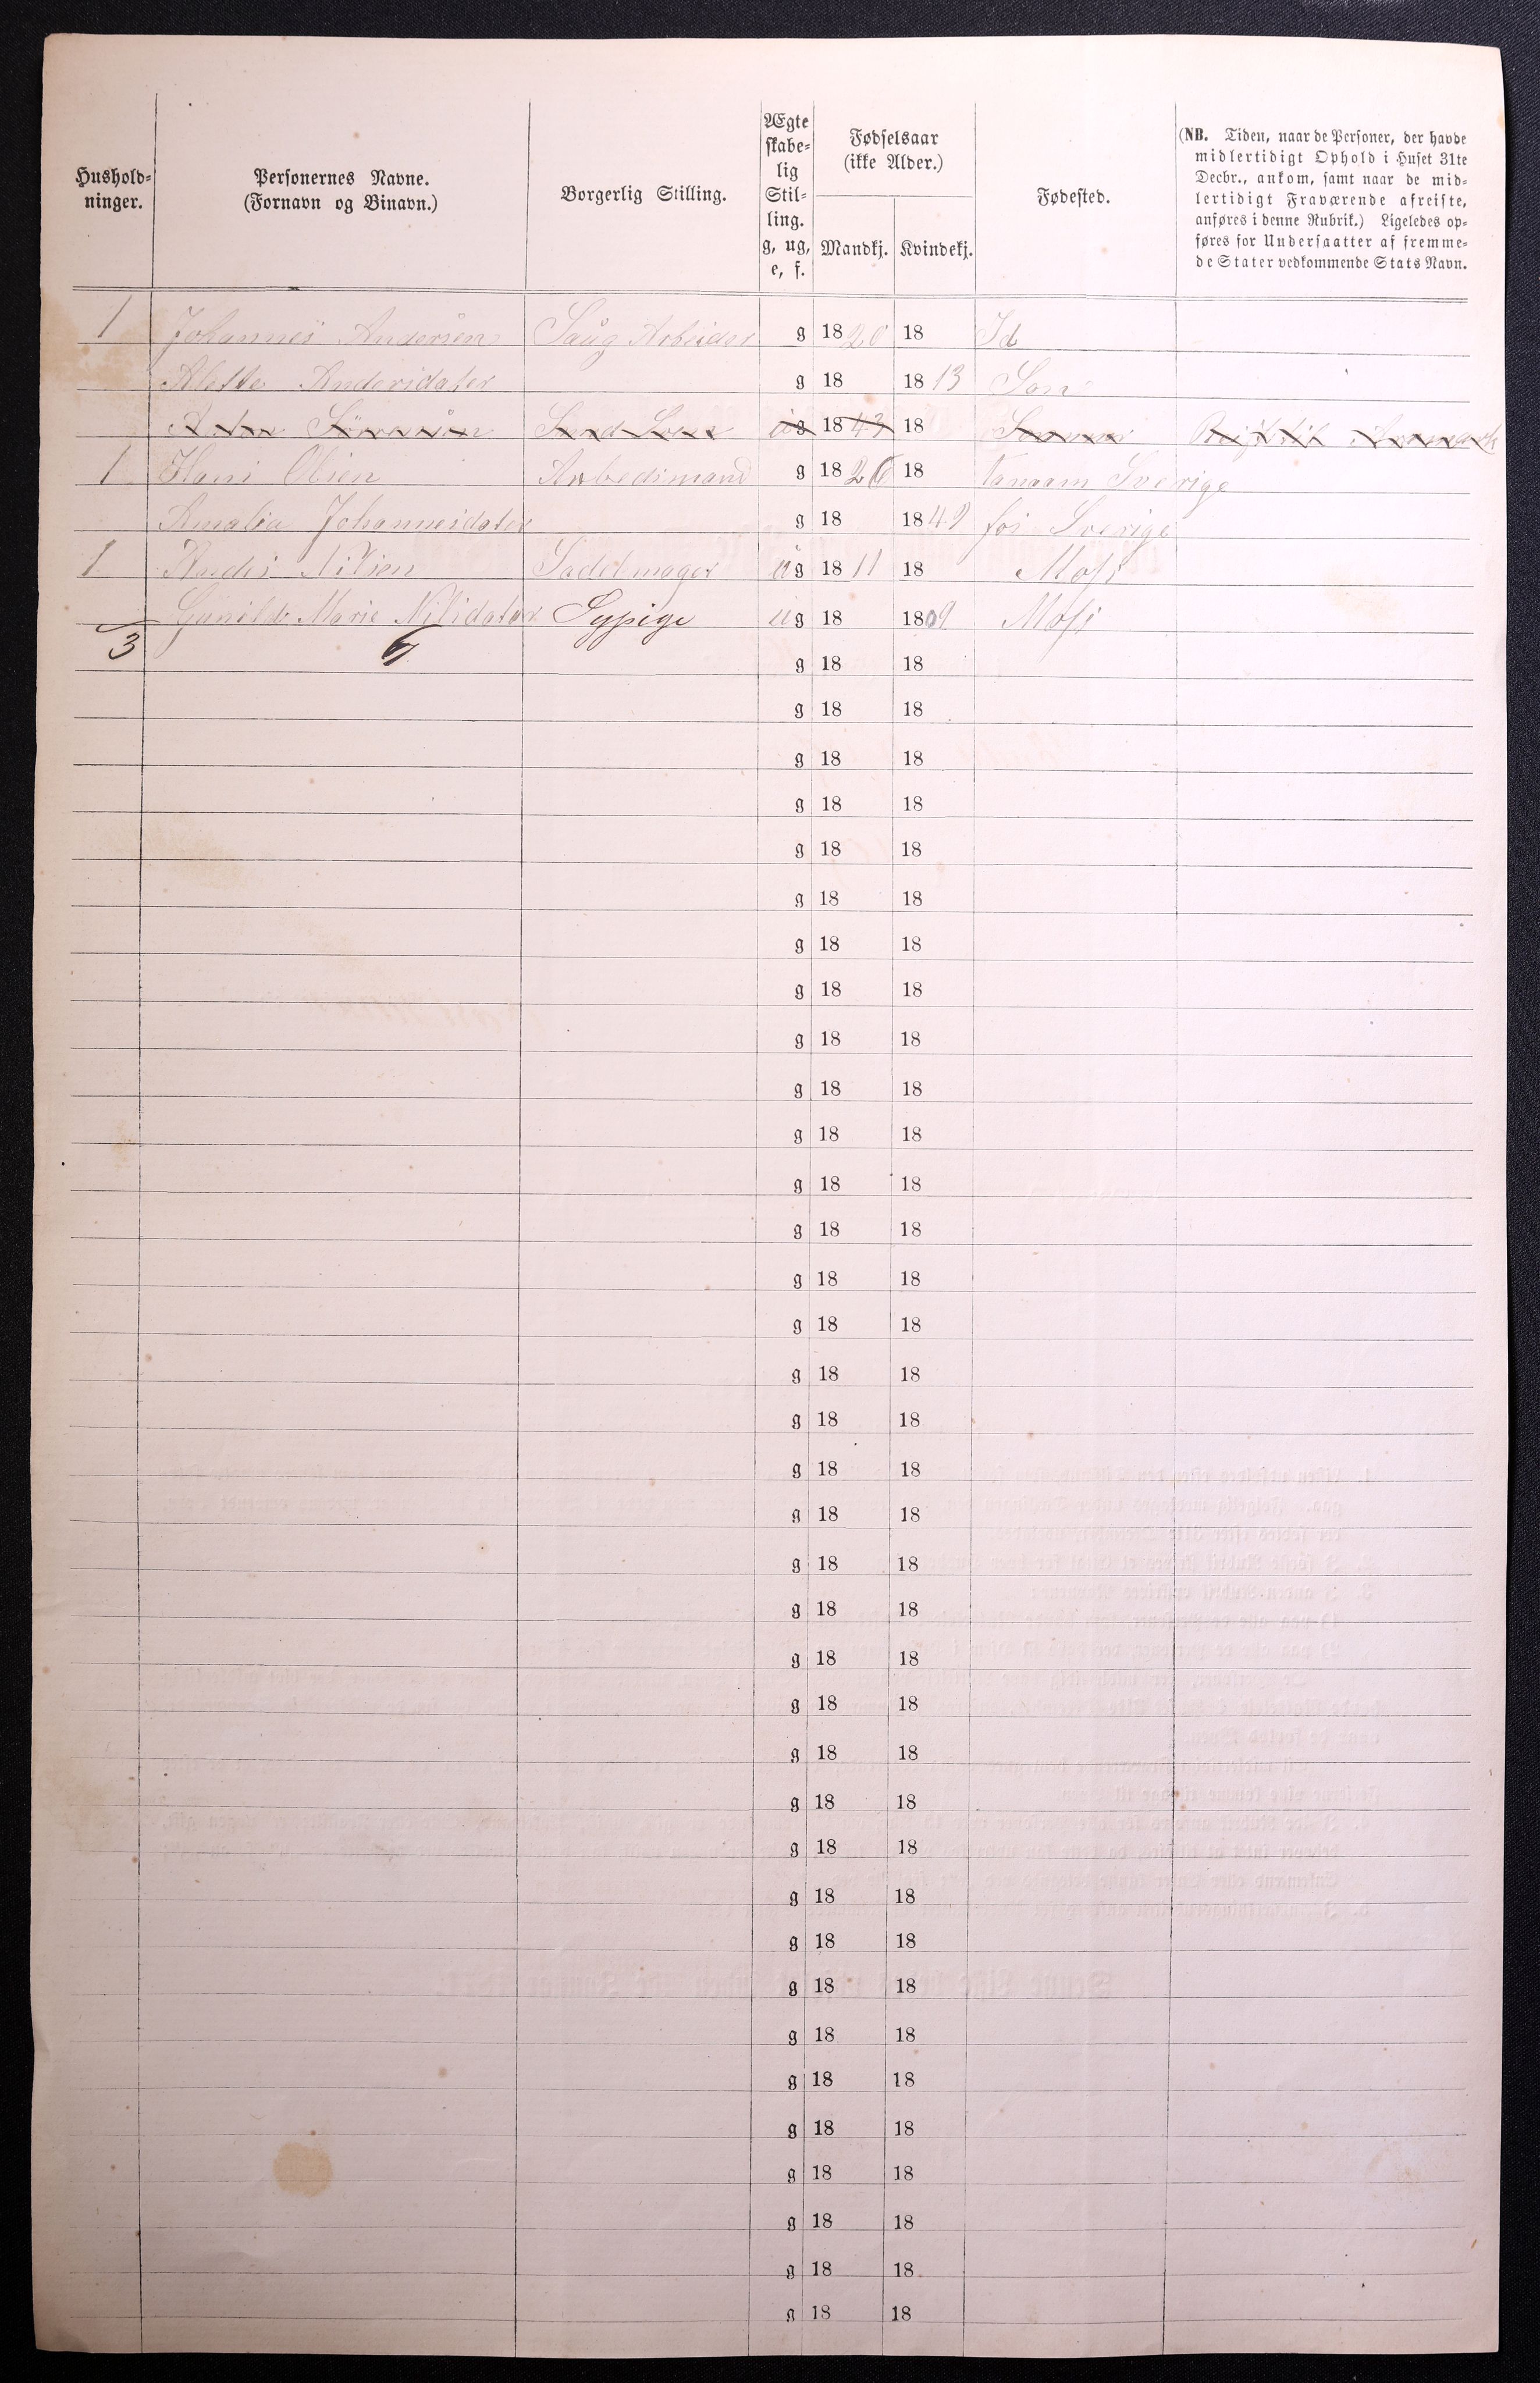 Hushold-
ninger.
Personernes Navne.
(Fornavn og Binavn.)
Borgerlig Stilling.
Ægte
skabe-
lig
Stil-
ling.
g, ug,
e, f.
Fødselsaar
(ikke Alder.)
Mandkj. Kvindekj.
Fødested.
(NB. Tiden, naar de Personer, der havde
midlertidigt Ophold i Huset 31te
Decbr., ankom, samt naar de mid-
lertidigt Fraværende afreiste,
anføres i denne Rubrik.) Ligeledes op-
føres for Undersaatter af fremme-
de Stater vedkommende Stats Navn.
1 Johannes Andersen Saug Arbeider g 1820 18 Id
Alette Andersdater g 18 1813 Son
Anton Sørensen ug 1843 18
1 Hans Olsen Arbedsmand g 1826 18 Tanaam Sverige
Amalia Johannesdater g 18 1849 fos Sverige
1 Andes Nilsen Sadelmager ug 1811 18 Moss
Gunilde Marie Nilsdater Sypige ug 18 1809 Moss
3 6 g 18 18
g 18 18
g 18 18
g 18 18
g 18 18
g 18 18
g 18 18
g 18 18
g 18 18
g 18 18
g 18 18
g 18 18
g 18 18
g 18 18
g 18 18
g 18 18
g 18 18
g 18 18
g 18 18
g 18 18
g 18 18
g 18 18
g 18 18
g 18 18
g 18 18
g 18 18
g 18 18
g 18 18
g 18 18
g 18 18
g 18 18
g 18 18
g 18 18
g 18 18
g 18 18
g 18 18